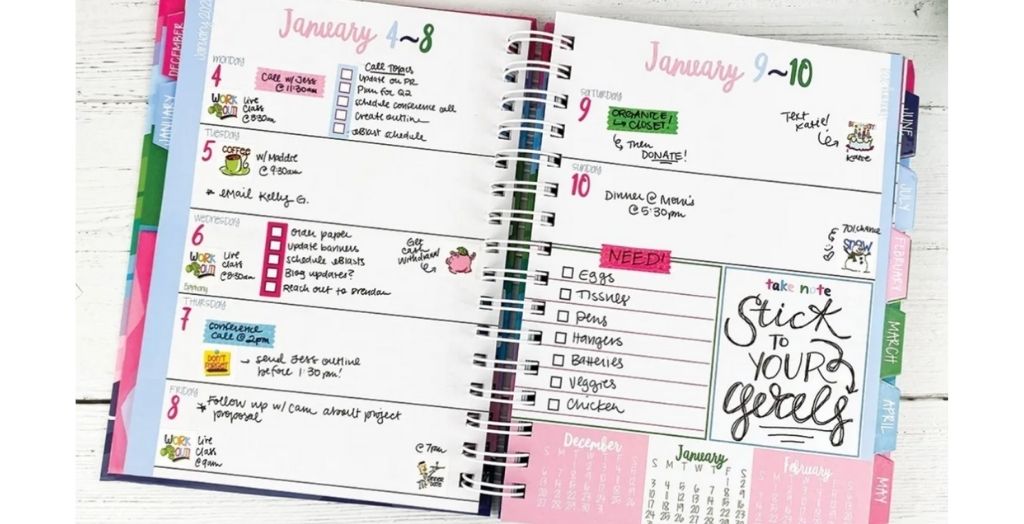 DECEMBER
JANUARY
January 4~8
monday
4
Call w/ Jess
@ 11:30am
WORK
OUT
Live
Class
@ 8:30am
Call Topics
Update on PR
Plan for Q2
schedule conference call
Create outline
eBlast schedule
TUESDAY
5
COFFEE
w/ Maddie
@ 9:30am
* eMail Kelly G.
wednesday
6
WORK
OUT
Live
Class
@ 8:30am
order paper
update banners
schedule eBlasts
Blog updates?
Reach out to Brendan
Get
cash
withdrawl
THURSDAY
7
Conference
Call @ 2pm
DON'T
FORGET
→ send Jess outline
before 1:30 pm!
FRIDAY
8
* Follow up w/ Cam about project
proposal
WORK
OUT
Live
Class
@ 9am
@ 7pm
January 9~10
SATURDAY
9
ORGANIZE
CLOSET!
↳ Then
DONATE!
Text
Katie!
Katie
sunday
10
Dinner @ Mom's
@ 5:30pm
70% chance
SNOW
NEED!
Eggs
Tissues
Pens
Hangers
Batteries
Veggies
Chicken
take note
Stick
TO
YOUR
goals
December
January
February
S M T W T F S
JUNE
JULY
FEBRUARY
MARCH
APRIL
MAY